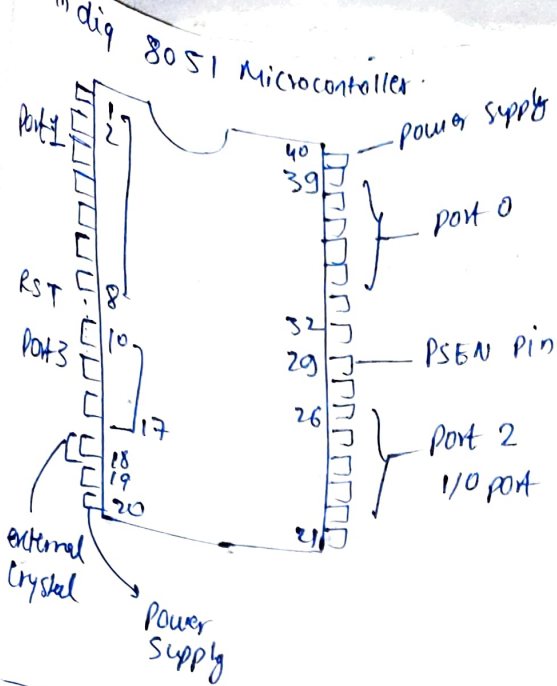 dig 8051 Microcontoller.
Port 1
1
2
8
RST
Port 3
10
17
18
19
20
external
Crystal
Power
Supply
40
power supply
39
port 0
32
29
PSEN pin
26
Port 2
I/O port
21